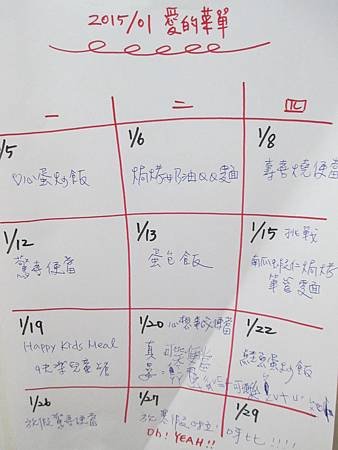 2015/01 愛的菜單
一 二 四
1/5 1/6 1/8
心蛋炒飯 焗烤奶油QQ麵 壽喜燒便當
1/12 1/13 1/15 挑戰
驚喜便當 蛋包飯 南瓜蝦仁焗烤
筆管麵
1/19 1/20 心想事成便當 1/22
Happy Kids Meal
快樂兒童餐 鮭魚蛋炒飯
1/26 1/27 1/29
放假驚喜便當 放寒假
Oh! YEAH!!